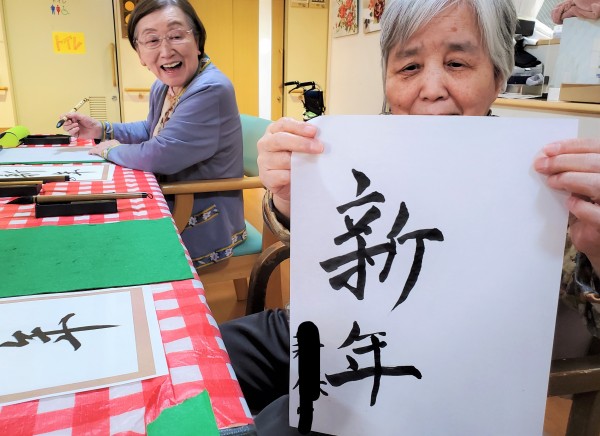 トイレ
新
年
年